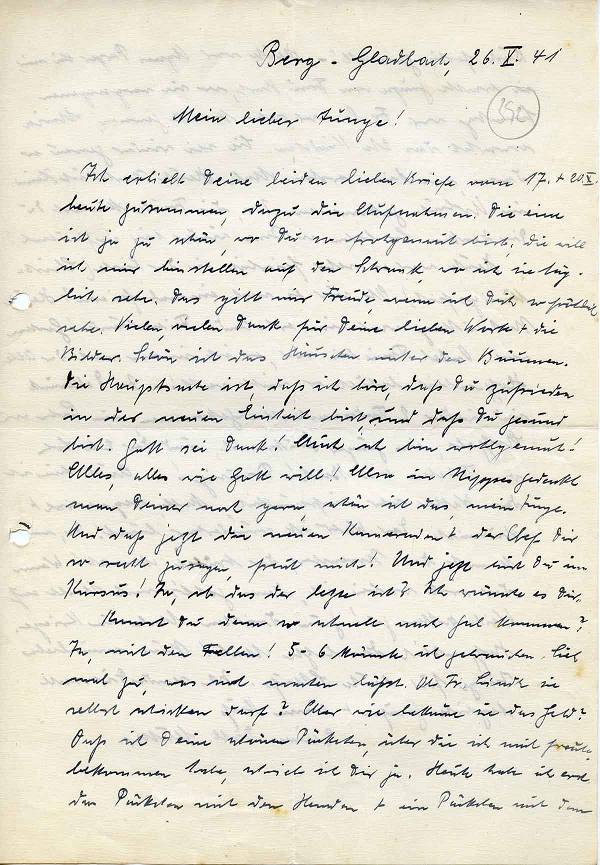 Berg-Gladbach, 26. X. 41
392
Mein lieber Junge!
Ich erhielt Deine beiden lieben Briefe vom 17. + 20. X.
heute zusammen, dazu die Aufnahmen. Die eine
ist ja zu schön, wo Du so frohgemut bist, die will
ich mir hinstellen auf den Schrank, wo ich sie täg-
lich sehe. Das gibt mir Freude, wenn ich Dich so fröhlich
sehe. Vielen, vielen Dank für Deine lieben Worte + die
Bilder. Schön ist das Häuschen unter den Bäumen.
Die Hauptsache ist, daß ich höre, daß Du zufrieden
in der neuen Einheit bist, und daß Du gesund
bist. Gott sei Dank! Auch ich bin wohlgemut!
Alles, alles wie Gott will! Also in Nippes gedenkt
man Deiner noch gern, schön ist das mein Junge.
Und daß jetzt die neuen Kameraden + der Chef Dir
so recht zusagen, freut mich! Und jetzt bist Du im
Kursus! Ja, ob das der letzte ist? Ich wünsche es Dir.
Kannst Du denn so schnell nach Hal kommen?
Ja, mit den Fellen! 5-6 könnte ich gebrauchen. Sieh
mal zu, was sich machen läßt. Ob Fr. Linde sie
selbst schicken darf? Aber wie bekäme sie das Geld?
Daß ich Deine schönen Päckchen, über die ich mich freute,
bekommen habe, schrieb ich Dir ja. Heute habe ich erst
das Päckchen mit den Hemden + ein Päckchen mit dem